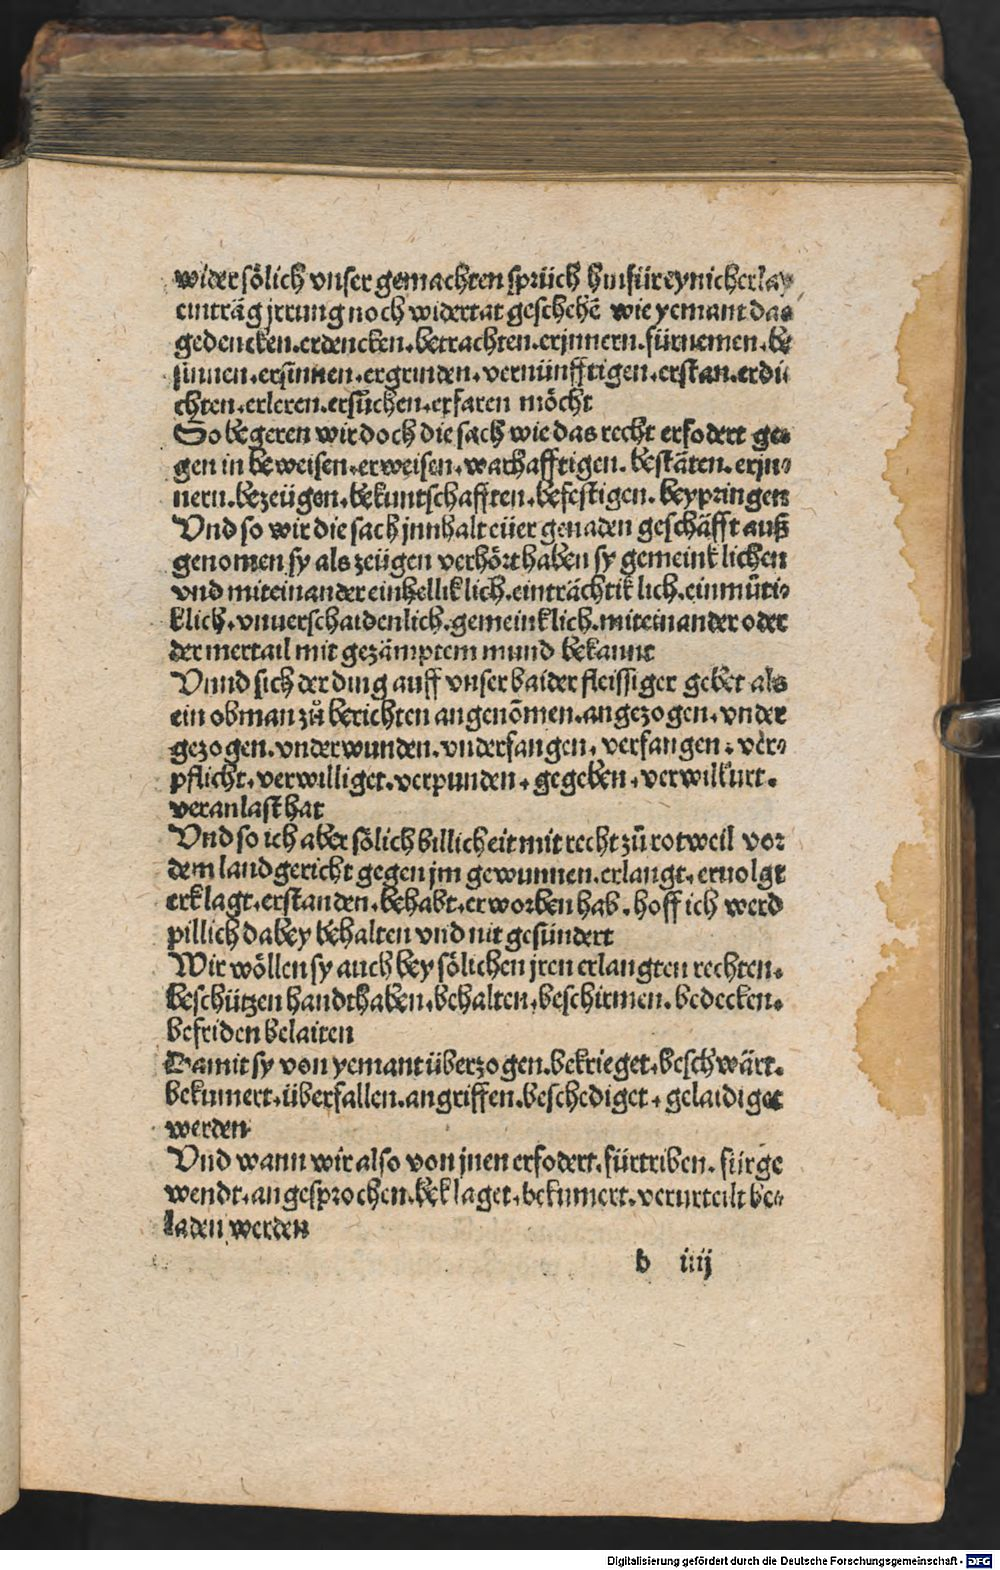 wider sölich vnser gemachten sprüch hinfür eynicherlay
einträg jrrung noch widertat geschehē wie yemant das
gedencken.erdencken.betrachten.erjnnern.fürnemen.be
sinnen.ersinnen.ergrinden.vernünfftigen.erstan.erdi
chten.erleren.ersuchen.erfaren möcht
So begeren wir doch die sach wie das recht erfodert ge-
gen in beweisen.erweisen.warhafftigen.bestäten.erjn-
nern.bezeügen.bekuntschafften.befestigen.beypringen
Vnd so wir die sach jnnhalt eüer genaden geschäfft auß
genomen sy als zeügen verhört haben sy gemeinklichen
vnd miteinander einhelliklich.einträchtiklich.einmüti-
klich.vnuerschaidenlich.gemeinklich.miteinander oder
der mertail mit gezämptem mund bekannt
Vnnd sich der ding auff vnser baider fleissiger gebet als
ein obman zů berichten angenōmen.angezogen.vnder
gezogen.vnderwunden.vnderfangen.verfangen.ver-
pflicht.verwilliget.verpunden.gegeben.verwilkurt.
veranlast hat
Vnd so ich aber sölich billicheit mit recht zů rotweil vor
dem landgericht gegen jm gewunnen.erlangt.eruolgt
erklagt.erstanden.behabt.erworben hab.hoff ich werd
pillich dabey behalten vnd nit gesündert
Wir wöllen sy auch bey sölichen jren erlangten rechten.
beschützen handthaben.behalten.beschirmen.bedecken.
befriden belaiten
Damit sy von yemant überzogen.bekrieget.beschwärt.
bekumert.überfallen.angriffen.beschediget.gelaidiget
werden
Vnd wann wir also von jnen erfodert.fürtriben.fürge
wendt.angesprochen.beklaget.bekumert.verurteilt be-
laden werden
b iiij
Digitalisierung gefördert durch die Deutsche Forschungsgemeinschaft - DFG